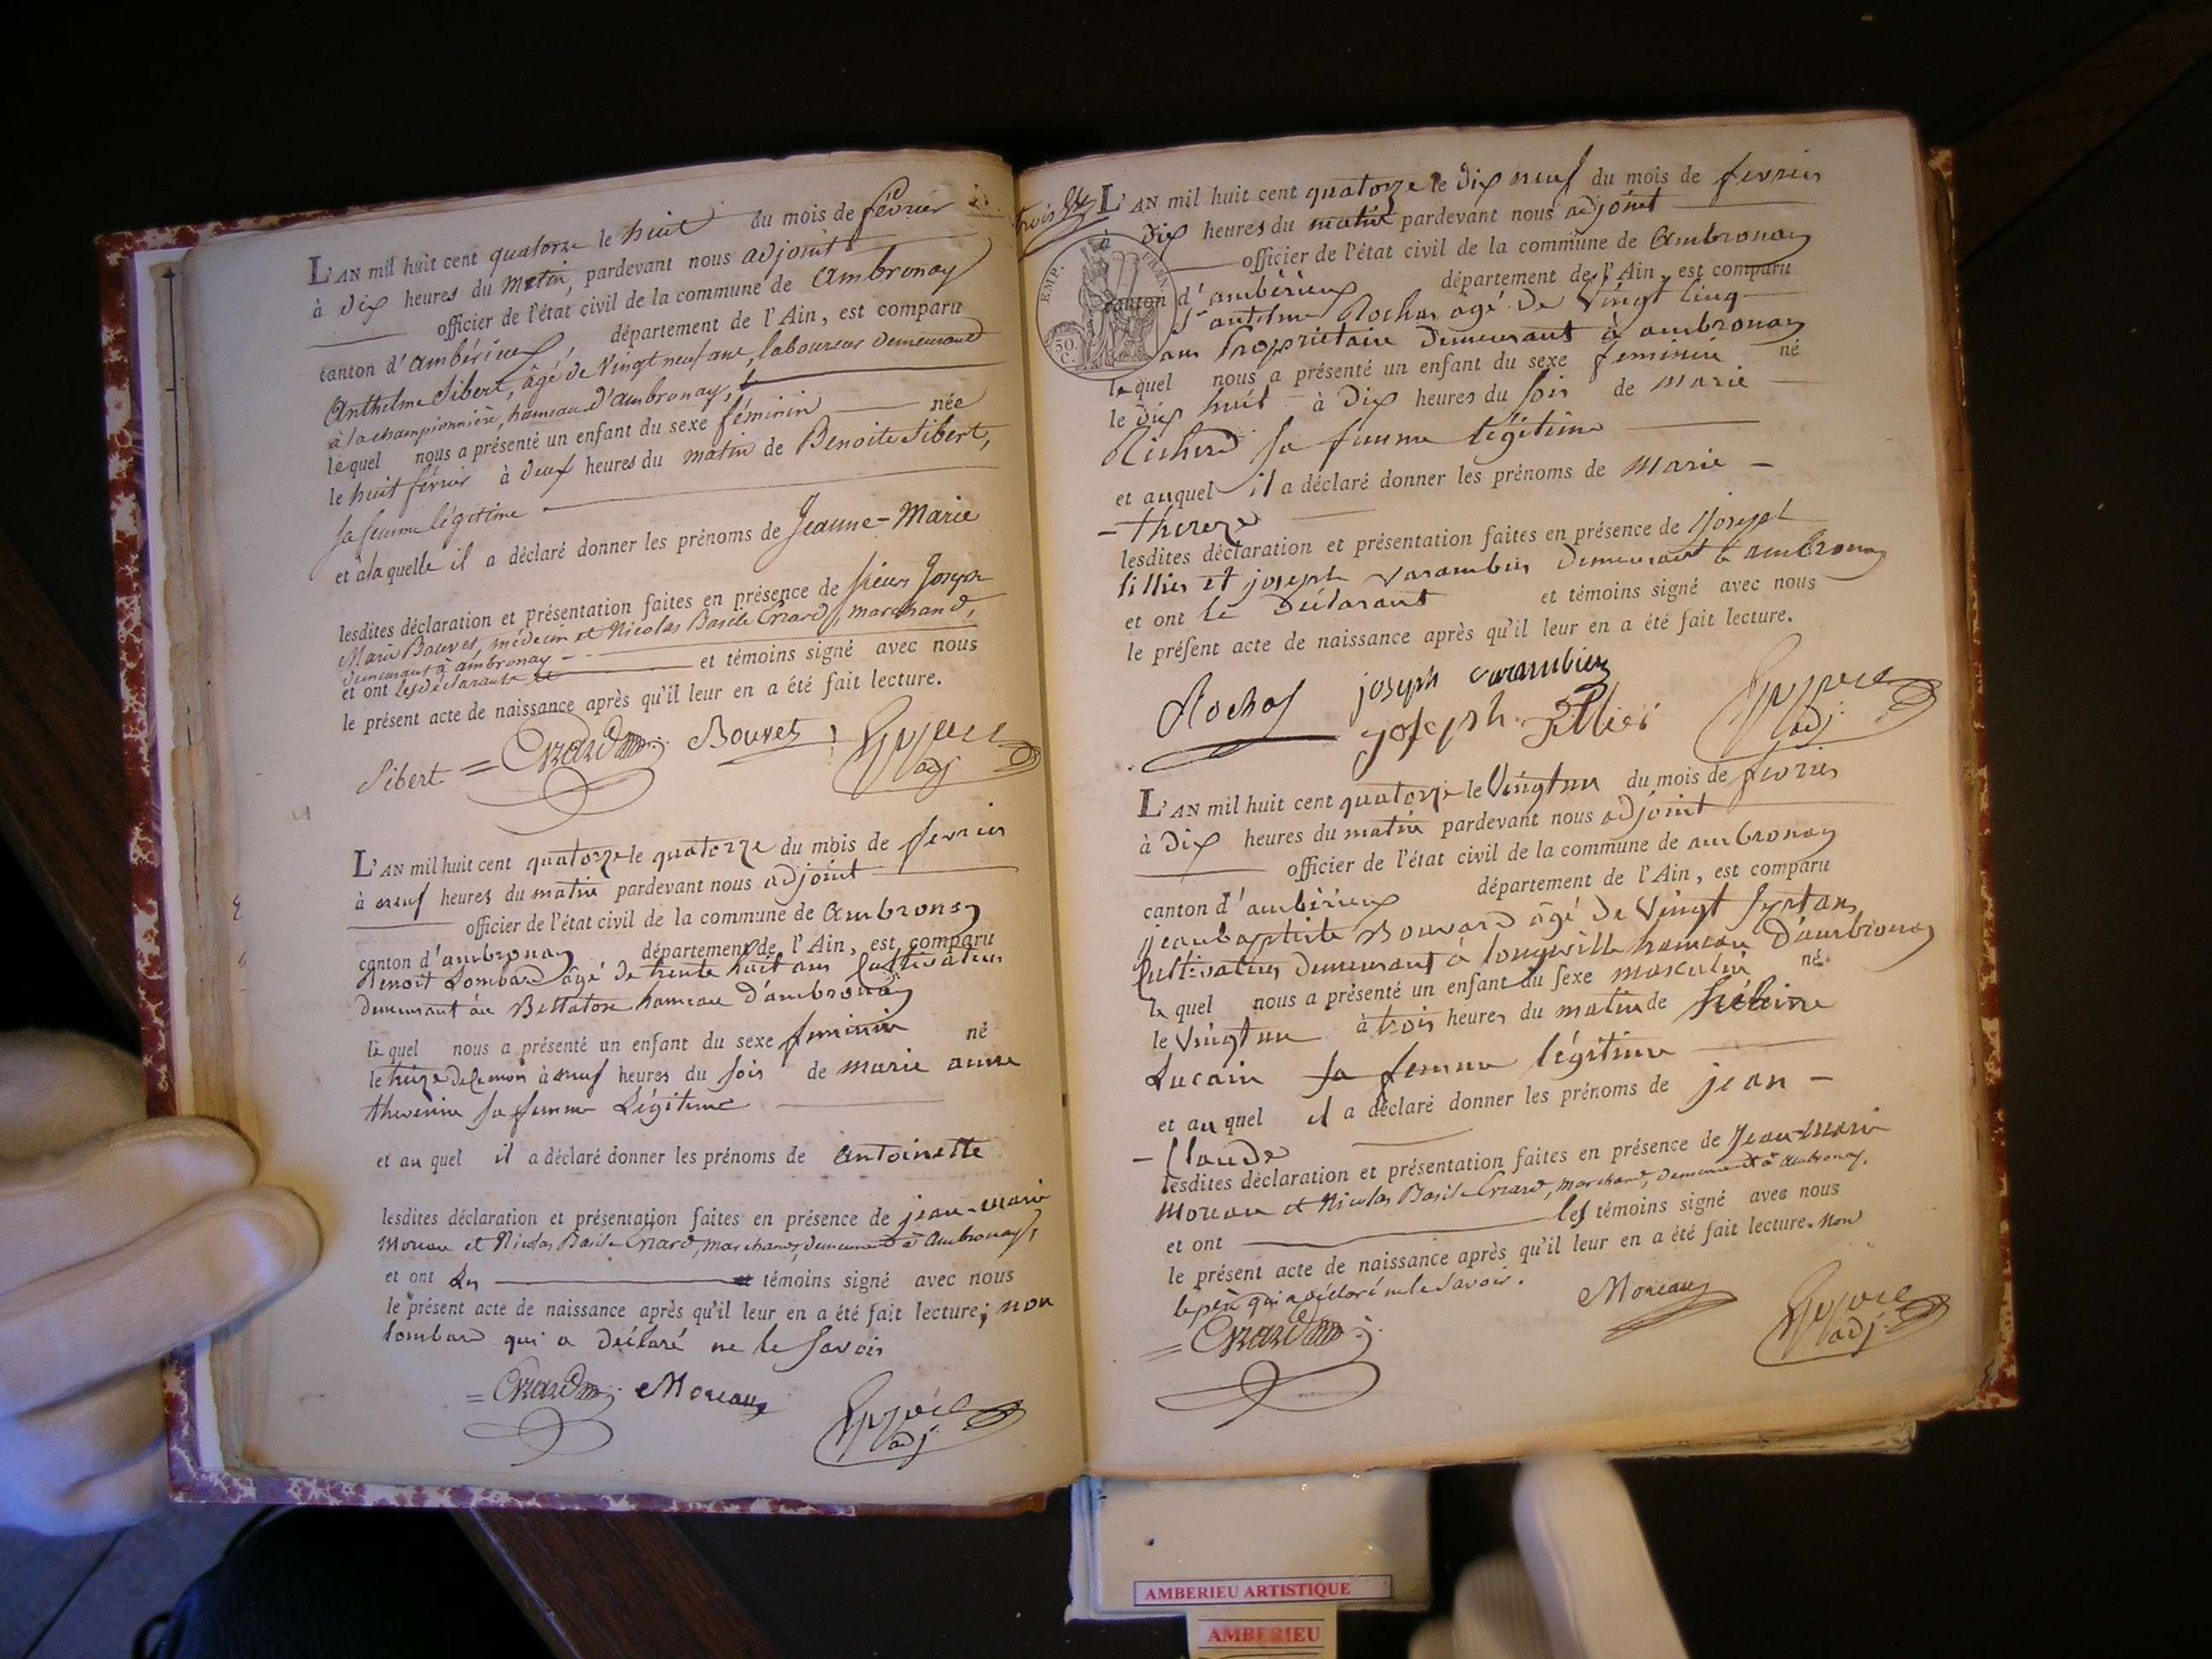 L'AN mil huit cent quatorze le huit du mois de février
à dix heures du matin, pardevant nous adjoint
officier de l'état civil de la commune de Ambronay
canton d'ambérieux, département de l'Ain, est comparu
Anthelme Sibert, âgé de vingt neuf ans, laboureur demeurant
à la championnière, hameau d'ambronay,
lequel nous a présenté un enfant du sexe féminin née
le huit février à deux heures du matin de Benoite Sibert,
sa femme légitime
et à laquelle il a déclaré donner les prénoms de Jeanne-Marie
lesdites déclaration et présentation faites en présence de sieurs Joseph
Marie Bouvet, médecin et Nicolas Basile Erard, marchand,
demeurant à ambronay
et ont les déclarants et témoins signé avec nous
le présent acte de naissance après qu'il leur en a été fait lecture.
Sibert Erard Bouvet
adj
L'AN mil huit cent quatorze le quatorze du mois de fevrier
à neuf heures du matin pardevant nous adjoint
officier de l'état civil de la commune de Ambronay
canton d'ambronay département de l'Ain, est comparu
Benoit Lombard âgé de trente huit ans Cultivateur
demeurant au Bellaton hameau d'ambronay
le quel nous a présenté un enfant du sexe feminin né
le treize de ce mois à neuf heures du soir de marie anne
thevenin sa femme Légitime
et au quel il a déclaré donner les prénoms de Antoinette
lesdites déclaration et présentation faites en présence de jean-marie
Moreau et Nicolas Basile Erard, marchands, demeurant à Ambronay,
et ont Les témoins signé avec nous
le présent acte de naissance après qu'il leur en a été fait lecture; non
lombard qui a déclaré ne le savoir
Erard Moreau
adj
trois
EMP. FRAN.
50. C.
L'AN mil huit cent quatorze le dix neuf du mois de fevrier
à dix heures du matin pardevant nous adjoint
officier de l'état civil de la commune de Ambronay
canton d'ambérieux département de l'Ain, est comparu
Sr antelme Rochas âgé de vingt cinq
ans Propriétaire demeurant à ambronay
le quel nous a présenté un enfant du sexe feminin né
le dix huit à dix heures du soir de marie
Richerd sa femme légitime
et auquel il a déclaré donner les prénoms de Marie -
- thereze
lesdites déclaration et présentation faites en présence de Joseph
tillier et joseph varambier demeurant à ambronay
et ont le déclarant et témoins signé avec nous
le présent acte de naissance après qu'il leur en a été fait lecture.
Rochas joseph varambier
joseph tillier
adj.
L'AN mil huit cent quatorze le vingt un du mois de fevrier
à dix heures du matin pardevant nous adjoint
officier de l'état civil de la commune de ambronay
canton d'ambérieux département de l'Ain, est comparu
jean baptiste Bouvard âgé de vingt sept ans
Cultivateur demeurant à longeville hameau d'ambronay
le quel nous a présenté un enfant du sexe masculin né
le vingt un à trois heures du matin de hélaine
Lucain sa femme légitime
et au quel il a déclaré donner les prénoms de jean -
- Claude
lesdites déclaration et présentation faites en présence de Jean-Marie
Moreau et Nicolas Basile Erard, marchand, demeurant à Ambronay.
et ont les témoins signé avec nous
le présent acte de naissance après qu'il leur en a été fait lecture. Non
le père qui a déclaré ne le savoir.
Erard Moreau
adj.
AMBERIEU ARTISTIQUE
AMBERIEU